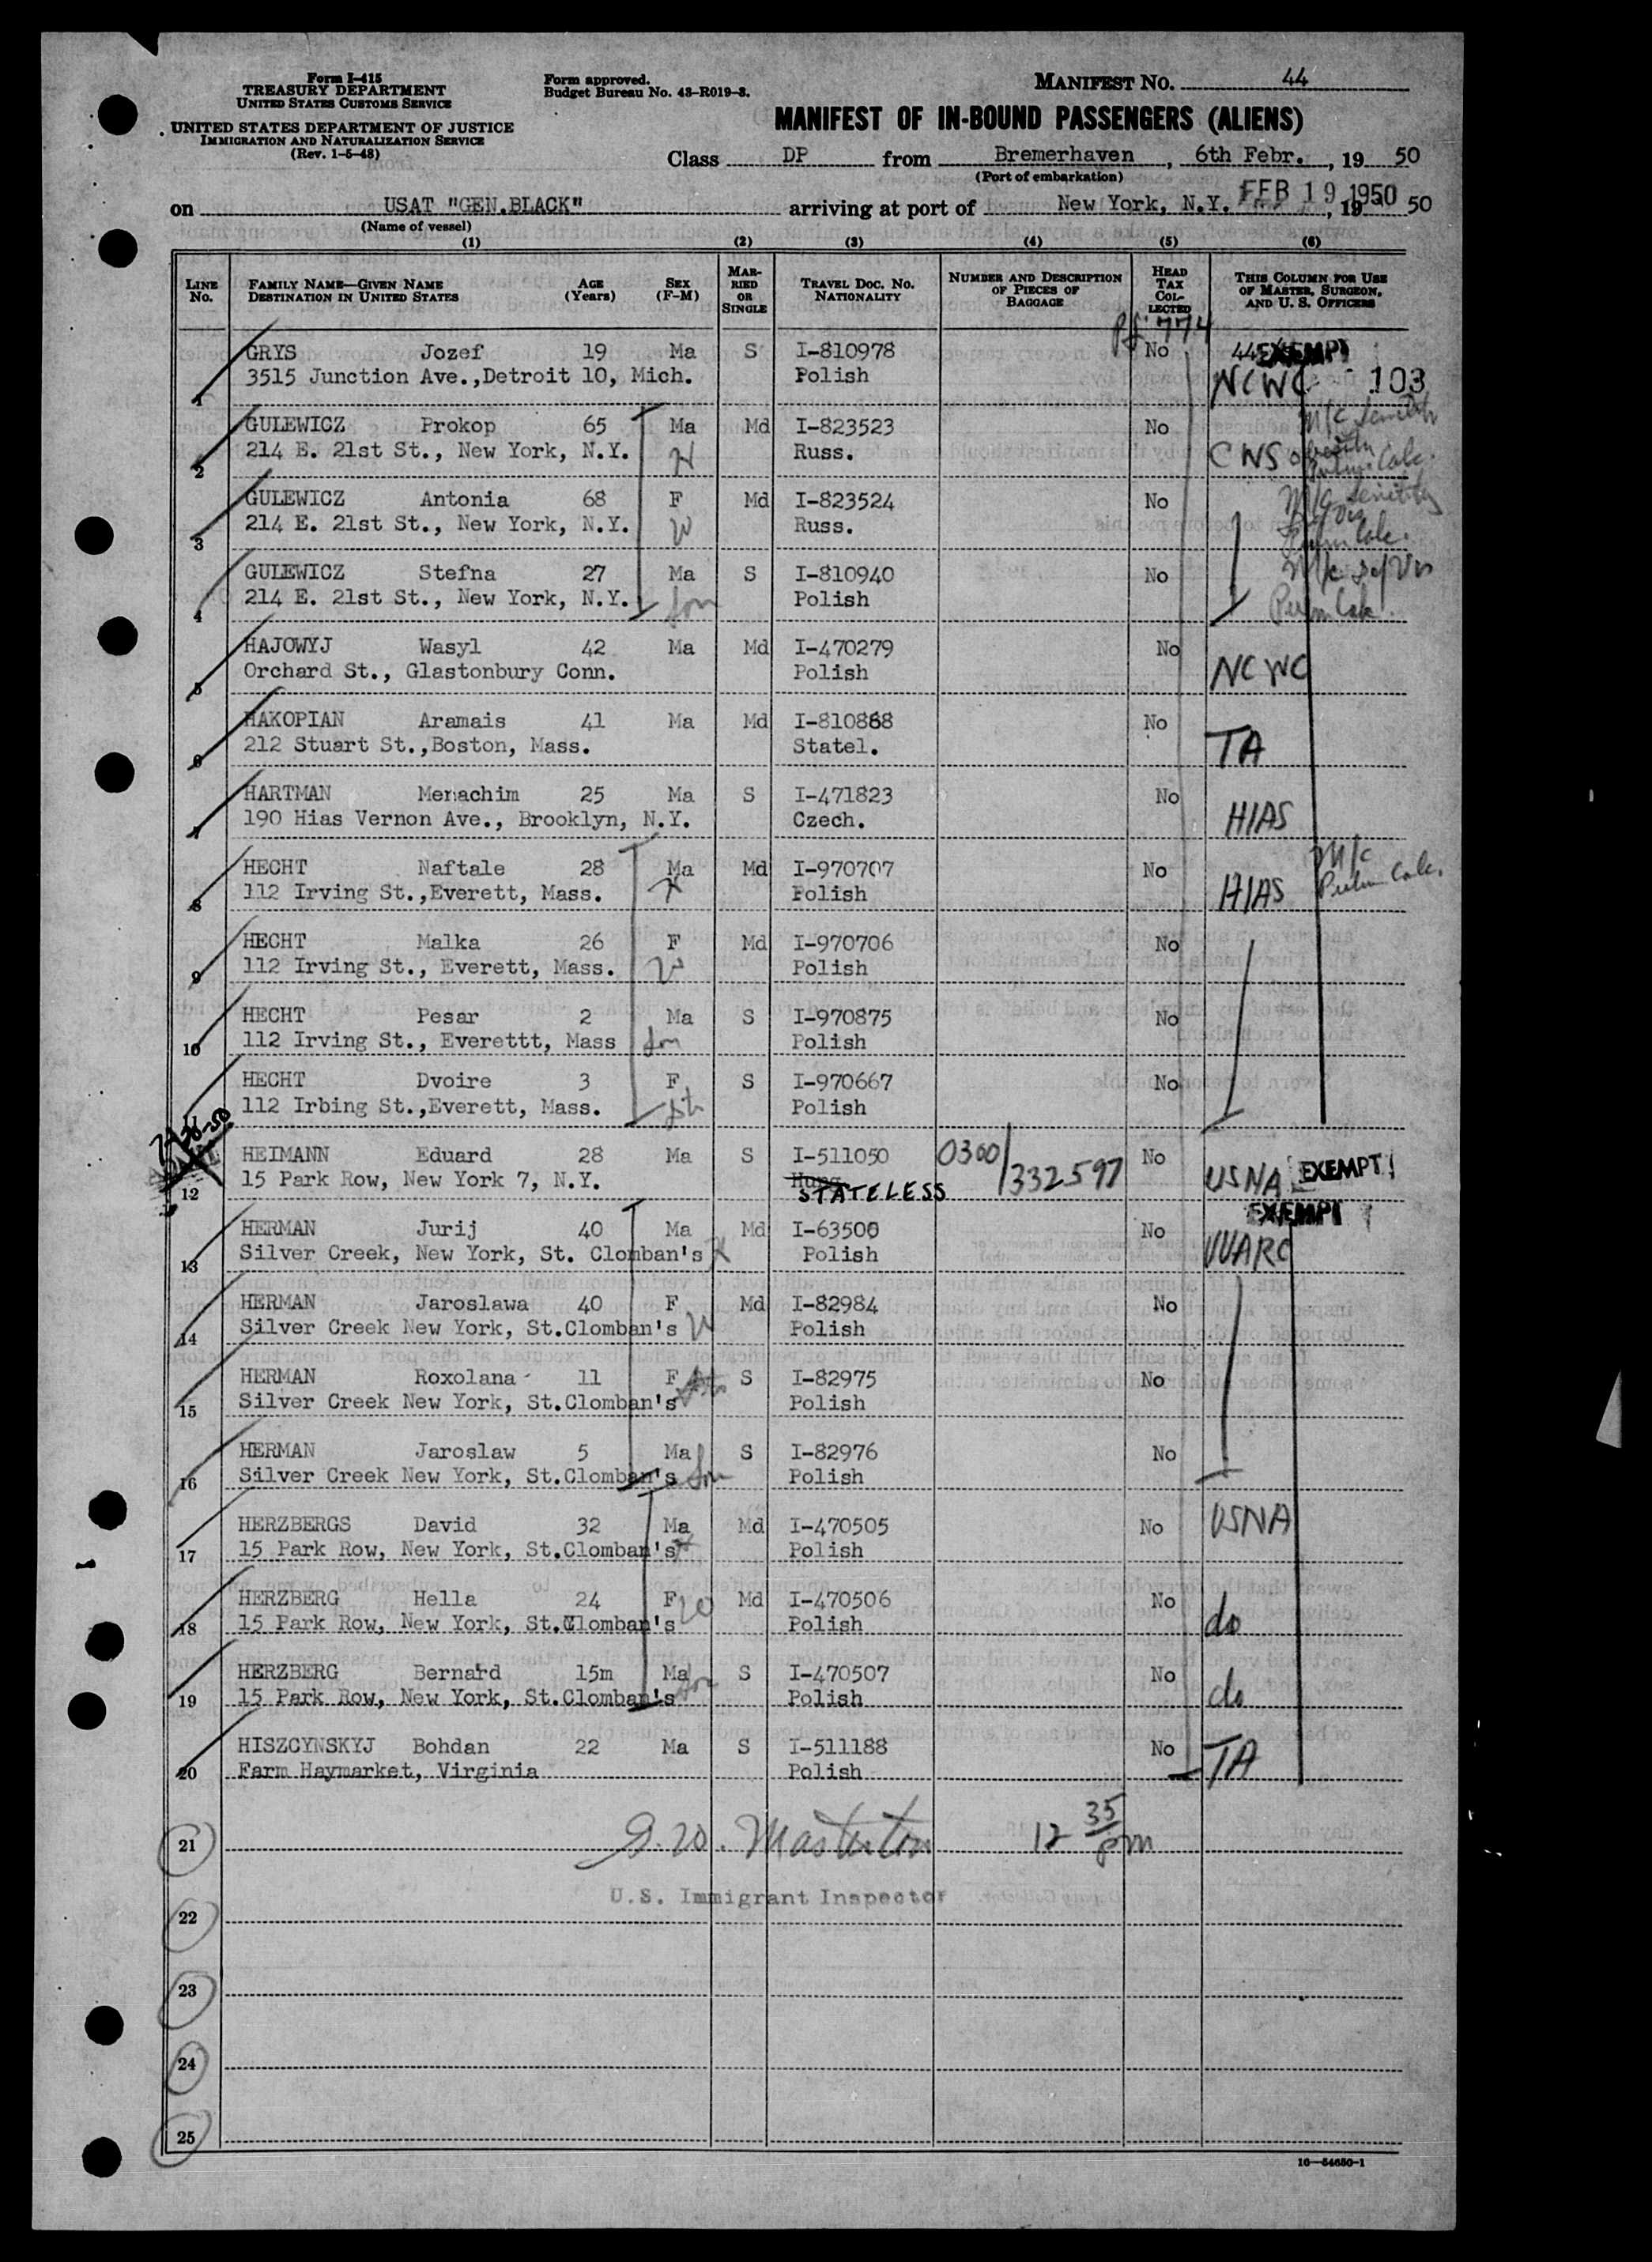 Form I-415
TREASURY DEPARTMENT
UNITED STATES CUSTOMS SERVICE
UNITED STATES DEPARTMENT OF JUSTICE
IMMIGRATION AND NATURALIZATION SERVICE
(Rev. 1-5-48)
Form approved.
Budget Bureau No. 43-R019-3.
MANIFEST NO. 44
MANIFEST OF IN-BOUND PASSENGERS (ALIENS)
Class DP from Bremerhaven, 6th Febr., 19 50
(Port of embarkation)
on USAT "GEN.BLACK" arriving at port of New York, N.Y. FEB 19 1950, 19 50
(Name of vessel)
(1) (2) (3) (4) (5) (6)
LINE No.
FAMILY NAME—GIVEN NAME
DESTINATION IN UNITED STATES
AGE (Years)
SEX (F-M)
MARRIED OR SINGLE
TRAVEL DOC. NO.
NATIONALITY
NUMBER AND DESCRIPTION OF PIECES OF BAGGAGE
HEAD TAX COLLECTED
THIS COLUMN FOR USE OF MASTER, SURGEON, AND U. S. OFFICERS
GRYS Jozef 19 Ma S I-810978 No EXEMPT
1 3515 Junction Ave.,Detroit 10, Mich. Polish NCWC 103
GULEWICZ Prokop 65 Ma Md I-823523 No
2 214 E. 21st St., New York, N.Y. H Russ. CWS
GULEWICZ Antonia 68 F Md I-823524 No
3 214 E. 21st St., New York, N.Y. W Russ.
GULEWICZ Stefna 27 Ma S I-810940 No
4 214 E. 21st St., New York, N.Y. son Polish
HAJOWYJ Wasyl 42 Ma Md I-470279 No
5 Orchard St., Glastonbury Conn. Polish NCWC
HAKOPIAN Aramais 41 Ma Md I-810868 No
6 212 Stuart St.,Boston, Mass. Statel. TA
HARTMAN Menachim 25 Ma S I-471823 No
7 190 Hias Vernon Ave., Brooklyn, N.Y. Czech. HIAS
HECHT Naftale 28 Ma Md I-970707 No M/c
8 112 Irving St.,Everett, Mass. H Polish HIAS Pulm Calc.
HECHT Malka 26 F Md I-970706 No
9 112 Irving St., Everett, Mass. W Polish
HECHT Pesar 2 Ma S I-970875 No
10 112 Irving St., Everettt, Mass son Polish
HECHT Dvoire 3 F S I-970667 No
11 112 Irbing St.,Everett, Mass. Polish
HEIMANN Eduard 28 Ma S I-511050 0300/332597 No
12 15 Park Row, New York 7, N.Y. Hung STATELESS USNA EXEMPT
EXEMPT
HERMAN Jurij 40 Ma Md I-63500 No
13 Silver Creek, New York, St. Clomban's H Polish UUARC
HERMAN Jaroslawa 40 F Md I-82984 No
14 Silver Creek New York, St.Clomban's W Polish
HERMAN Roxolana 11 F S I-82975 No
15 Silver Creek New York, St.Clomban's Polish
HERMAN Jaroslaw 5 Ma S I-82976 No
16 Silver Creek New York, St.Clomban's son Polish
HERZBERGS David 32 Ma Md I-470505 No USNA
17 15 Park Row, New York, St.Clomban's H Polish
HERZBERG Hella 24 F W Md I-470506 No
18 15 Park Row, New York, St.Clomban's Polish do
HERZBERG Bernard 15m Ma S I-470507 No
19 15 Park Row, New York, St.Clomban's son Polish do
HISZCYNSKYJ Bohdan 22 Ma S I-511188 No
20 Farm Haymarket, Virginia Polish TA
21 Masterton 12 35 pm
U.S. Immigrant Inspector
22
23
24
25
16—54650-1